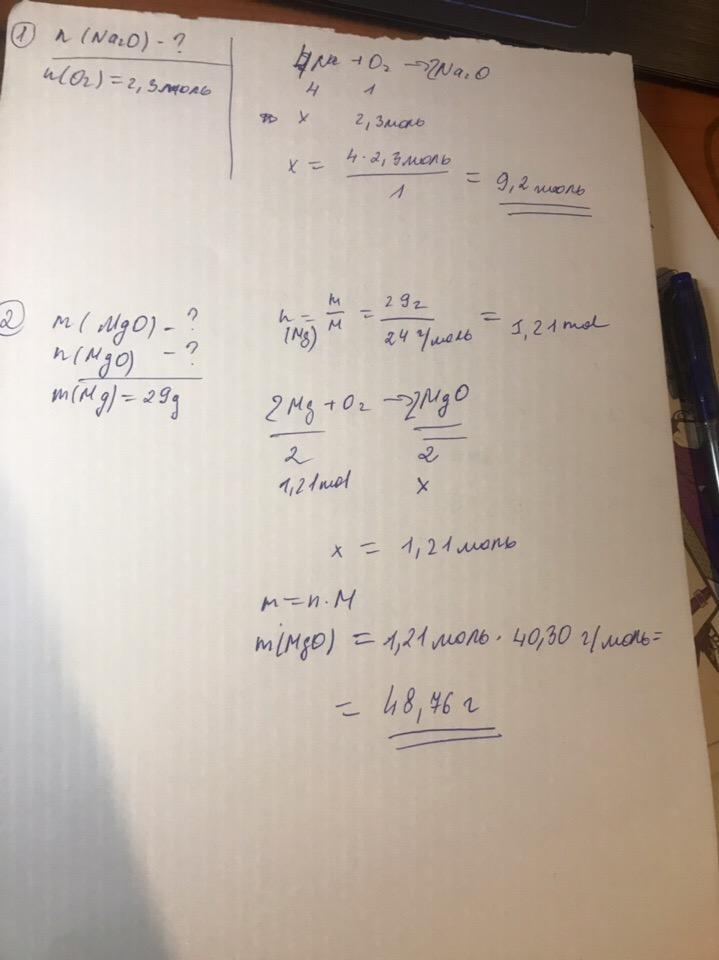 ① n (Na₂O) - ?
n(O₂) = 2,3моль
4Na + O₂ → 2Na₂O
4 1
x 2,3моль
x = 4·2,3моль / 1 = 9,2 моль
② m (MgO) - ?
n(MgO) - ?
m(Mg) = 29g
n (Mg) = m / M = 29г / 24 г/моль = 1,21 mol
2Mg + O₂ → 2MgO
2 2
1,21 mol x
x = 1,21 моль
m = n·M
m(MgO) = 1,21 моль · 40,30 г/моль =
= 48,76 г